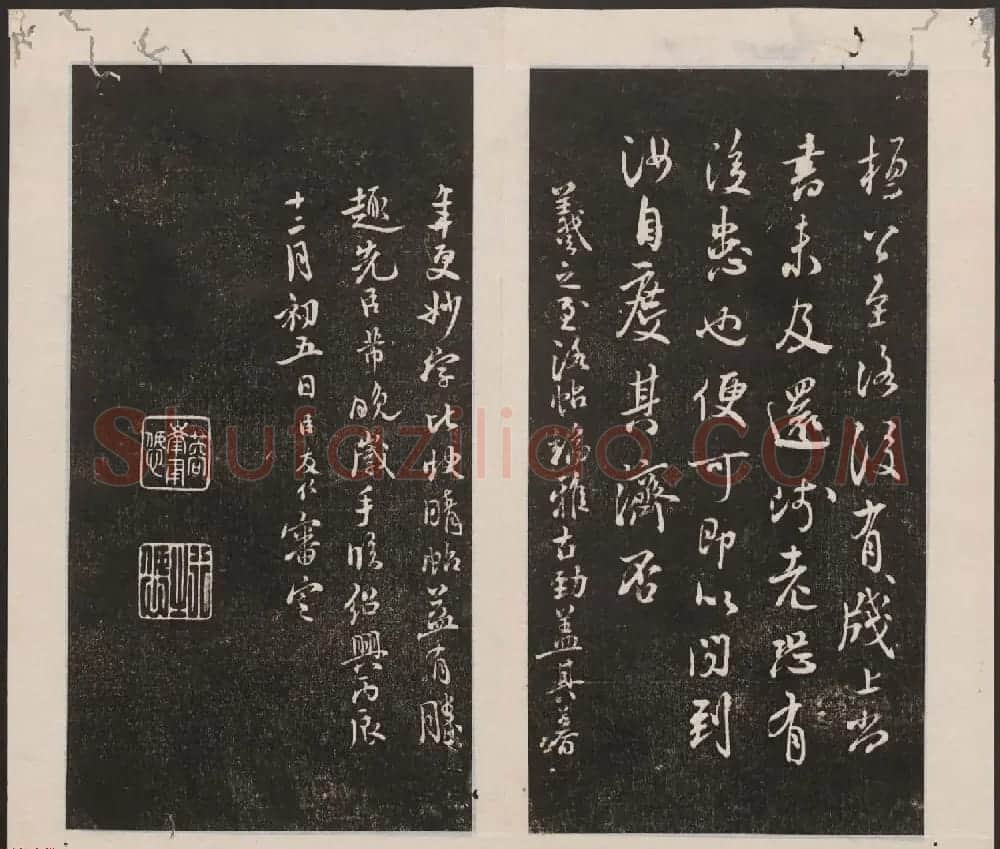 桓公至洛後有牋上當
書未及還老恐有
後患也便可即以聞到
汝自度其濟否
羲之至洛帖雅古勁蓋其暮
年更妙字比快晴帖益有勝
趣先臣芾晚歲手臨紹興丙辰
十二月初五日臣友仁審定
Shufaziliao.COM